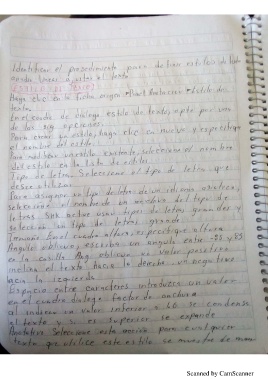 Identificar el procedimiento para definir estilos de texto
Haga clic en la ficha
En el cuadro de dialogo estilo de texto, opte por una
de las sig opciones.
Para crear un estilo, haga clic en nuevo y especifique
el nombre del estilo.
Para modificar un estilo existente, seleccione el nombre
del estilo en la lista de estilos.
Tipo de letra. Seleccione el tipo de letra que
desee utilizar.
Para asignar un tipo de letra de un idioma asiatico,
seleccione el nombre de un archivo del tipo de
letras SHX active usar tipos de letra grandes y
seleccione un tipo de letra grande.
Tamaño: En el cuadro altura, especifique altura
Angulo oblicuo, escriba un angulo entre -85 y 85
en la casilla Ang. oblicuo un valor positivo
inclina el texto hacia la derecha, un negativo
hacia la izquierda.
Espacio entre caracteres introduzca un valor
en el cuadro dialogo factor de anchura
al introducir un valor inferior a 1.0 se condensa
el texto y si es superior se expande
Anotativo Seleccione esta opción para
texto que utilice este estilo se muestre de manera
Scanned by CamScanner